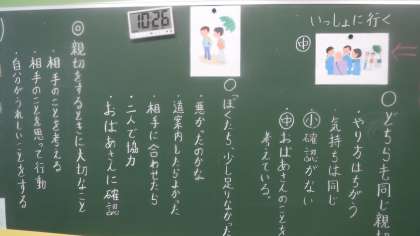 いっしょに行く
中
○どちらも同じ親切
・やり方はちがう
気持ちは同じ
小 確認がない
中 おばあさんのことを
考えている。
○「ぼくたち、少し足りなかった
・悪かったのかな
・道案内したらよかった
・相手に合わせたら
・二人で協力
おばあさんに確認
10:26
◎親切をするときに大切なこと
・相手のことを考える
・相手のことを思って行動
・自分がうれしいことをする